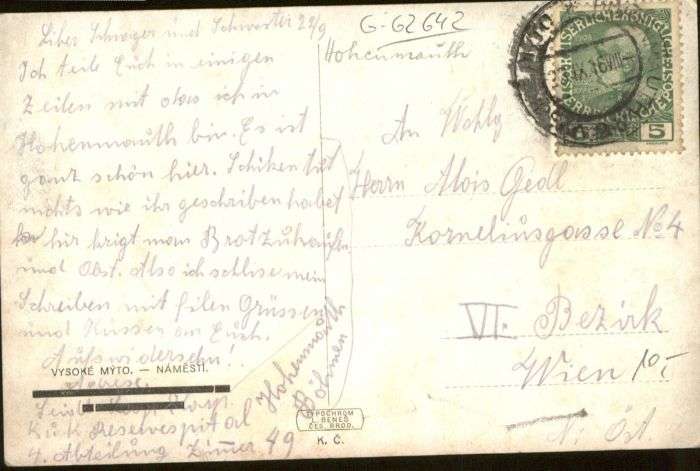 G-62642
Hohenmauth
Liber Schwager und Schwester 29/9
Ich teile Euch in einigen
Zeilen mit das ich in
Hohenmauth bin. Es ist
ganz schön hier. Schiken tut
nichts wie ihr geschriben habet
hir krigt man Brot zuhaufen
und Obst. Also ich schlise mein
Schreiben mit filen Grüssen
und Küssen an Euch.
Aufwidersehn!
Adrese
K.u.K Reservespital
4. Abteilung Zimer 49
Hohenmauth
Böhmen
VYSOKÉ MÝTO. — NÁMĚSTÍ.
TYPOCHROM
J. BENEŠ
ČES. BROD.
K. Č.
5
An Wohlg
Herrn Alois Gedl
Korneliusgasse No 4
VI. Bezirk
Wien
10.-
N. Öst.